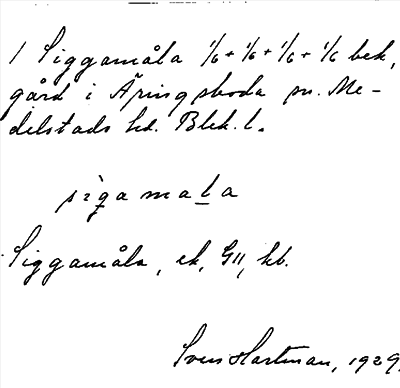 1 Siggamåla 1/6 + 1/6 + 1/6 + 1/6 bek,
gård i Äringsboda sn. Me-
delstads hd. Blek. l.
sìg̠a mal̠a
Siggamåla, ek, GII, kb.
Sven Hartman, 1929.